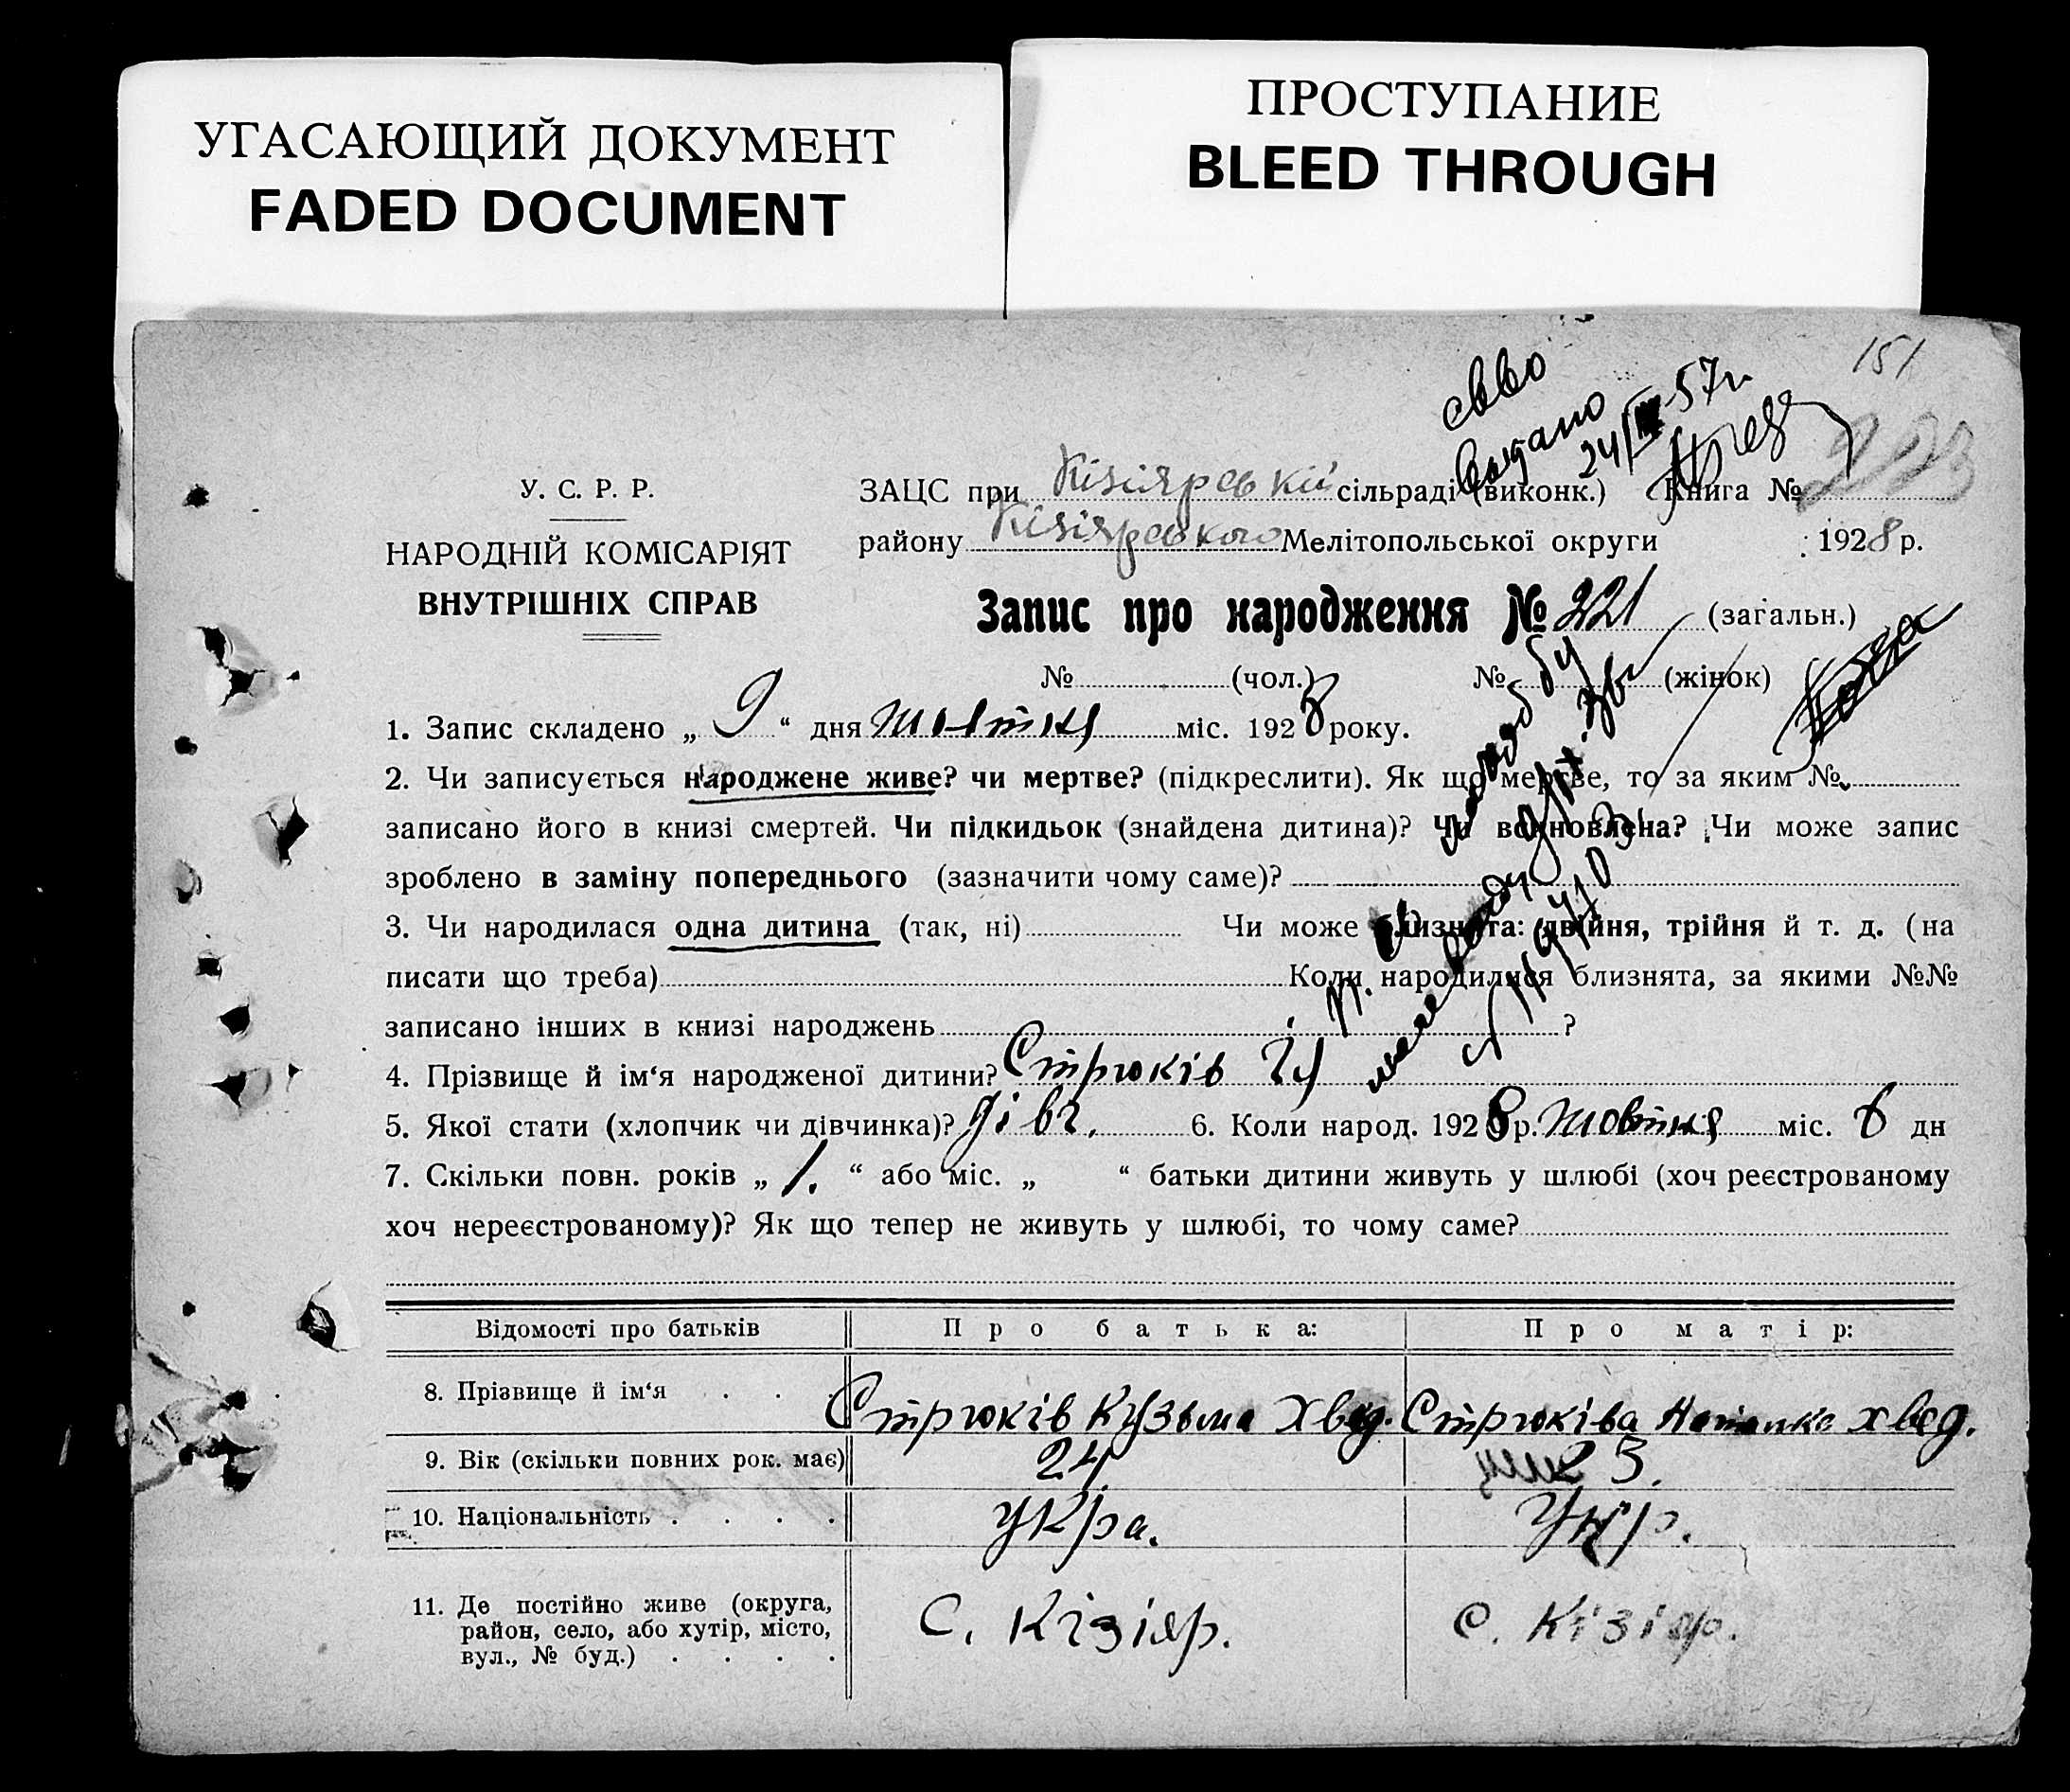 УГАСАЮЩИЙ ДОКУМЕНТ
FADED DOCUMENT
ПРОСТУПАНИЕ
BLEED THROUGH
151
св-во
выдано
24/III-57г
У. С. Р. Р.
НАРОДНІЙ КОМІСАРІЯТ
ВНУТРІШНІХ СПРАВ
ЗАЦС при Кізіярській сільраді (виконк.) Книга №
району Кізіярського Мелітопольської округи 1928 р.
Запис про народження № 221 (загальн.)
№ (чол.) № (жінок)
1. Запис складено „ 9 “ дня жовтня міс. 1928 року.
2. Чи записується народжене живе? чи мертве? (підкреслити). Як що мертве, то за яким №
записано його в книзі смертей. Чи підкидьок (знайдена дитина)? Чи всиновлена? Чи може запис
зроблено в заміну попереднього (зазначити чому саме)?
3. Чи народилася одна дитина (так, ні) Чи може близнята: двійня, трійня й т. д. (на
писати що треба) Коли народилися близнята, за якими №№
записано інших в книзі народжень ?
4. Прізвище й ім‘я народженої дитини? Стрюків
5. Якої стати (хлопчик чи дівчинка)? дівч. 6. Коли народ. 1928 р. жовтня міс. 6 дн
7. Скільки повн. років „ 1. “ або міс. „ “ батьки дитини живуть у шлюбі (хоч реєстрованому
хоч нереєстрованому)? Як що тепер не живуть у шлюбі, то чому саме?
Відомості про батьків Про батька: Про матір:
8. Прізвище й ім‘я Стрюків Кузьма Хвед. Стрюківа Хвед.
9. Вік (скільки повних рок. має) 24 23.
10. Національність укра. Укр.
11. Де постійно живе (округа,
район, село, або хутір, місто,
вул., № буд.) С. Кізіяр. С. Кізіяр.